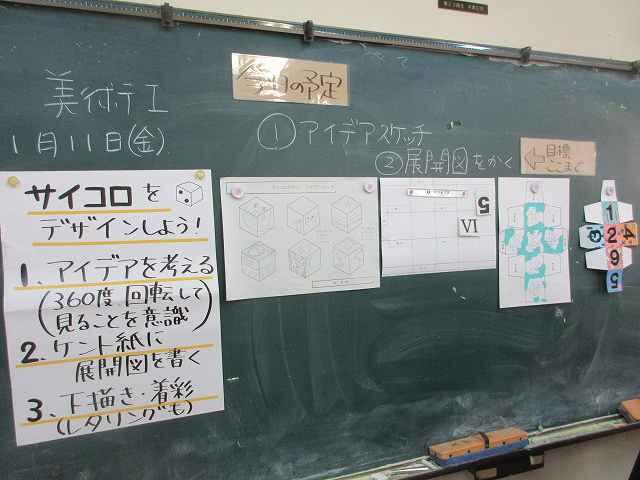 美術デI
1月11日(金)
今日の予定
① アイデアスケッチ
② 展開図をかく
目標
ここまで
サイコロを
デザインしよう!
1、アイデアを考える
(360度、回転して
見ることを意識)
2、ケント紙に
展開図を書く
3、下描き・着彩
(レタリングも)
5
VI
1
2
4
6
5